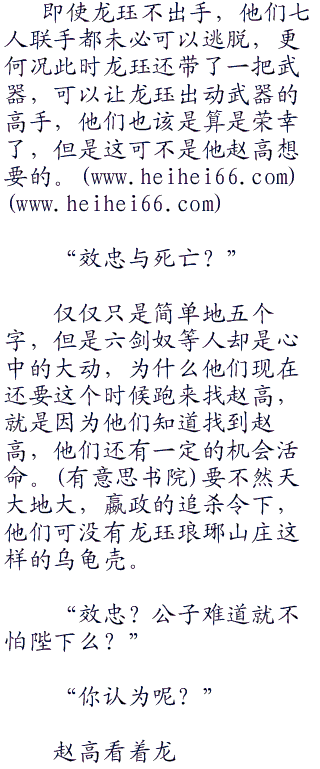 即使龙珏不出手，他们七
人联手都未必可以逃脱，更
何况此时龙珏还带了一把武
器，可以让龙珏出动武器的
高手，他们也该是算是荣幸
了，但是这可不是他赵高想
要的。(www.heihei66.com)
(www.heihei66.com)
“效忠与死亡？”
仅仅只是简单地五个
字，但是六剑奴等人却是心
中的大动，为什么他们现在
还要这个时候跑来找赵高，
就是因为他们知道找到赵
高，他们还有一定的机会活
命。(有意思书院)要不然天
大地大，嬴政的追杀令下，
他们可没有龙珏琅琊山庄这
样的乌龟壳。
“效忠？公子难道就不
怕陛下么？”
“你认为呢？”
赵高看着龙